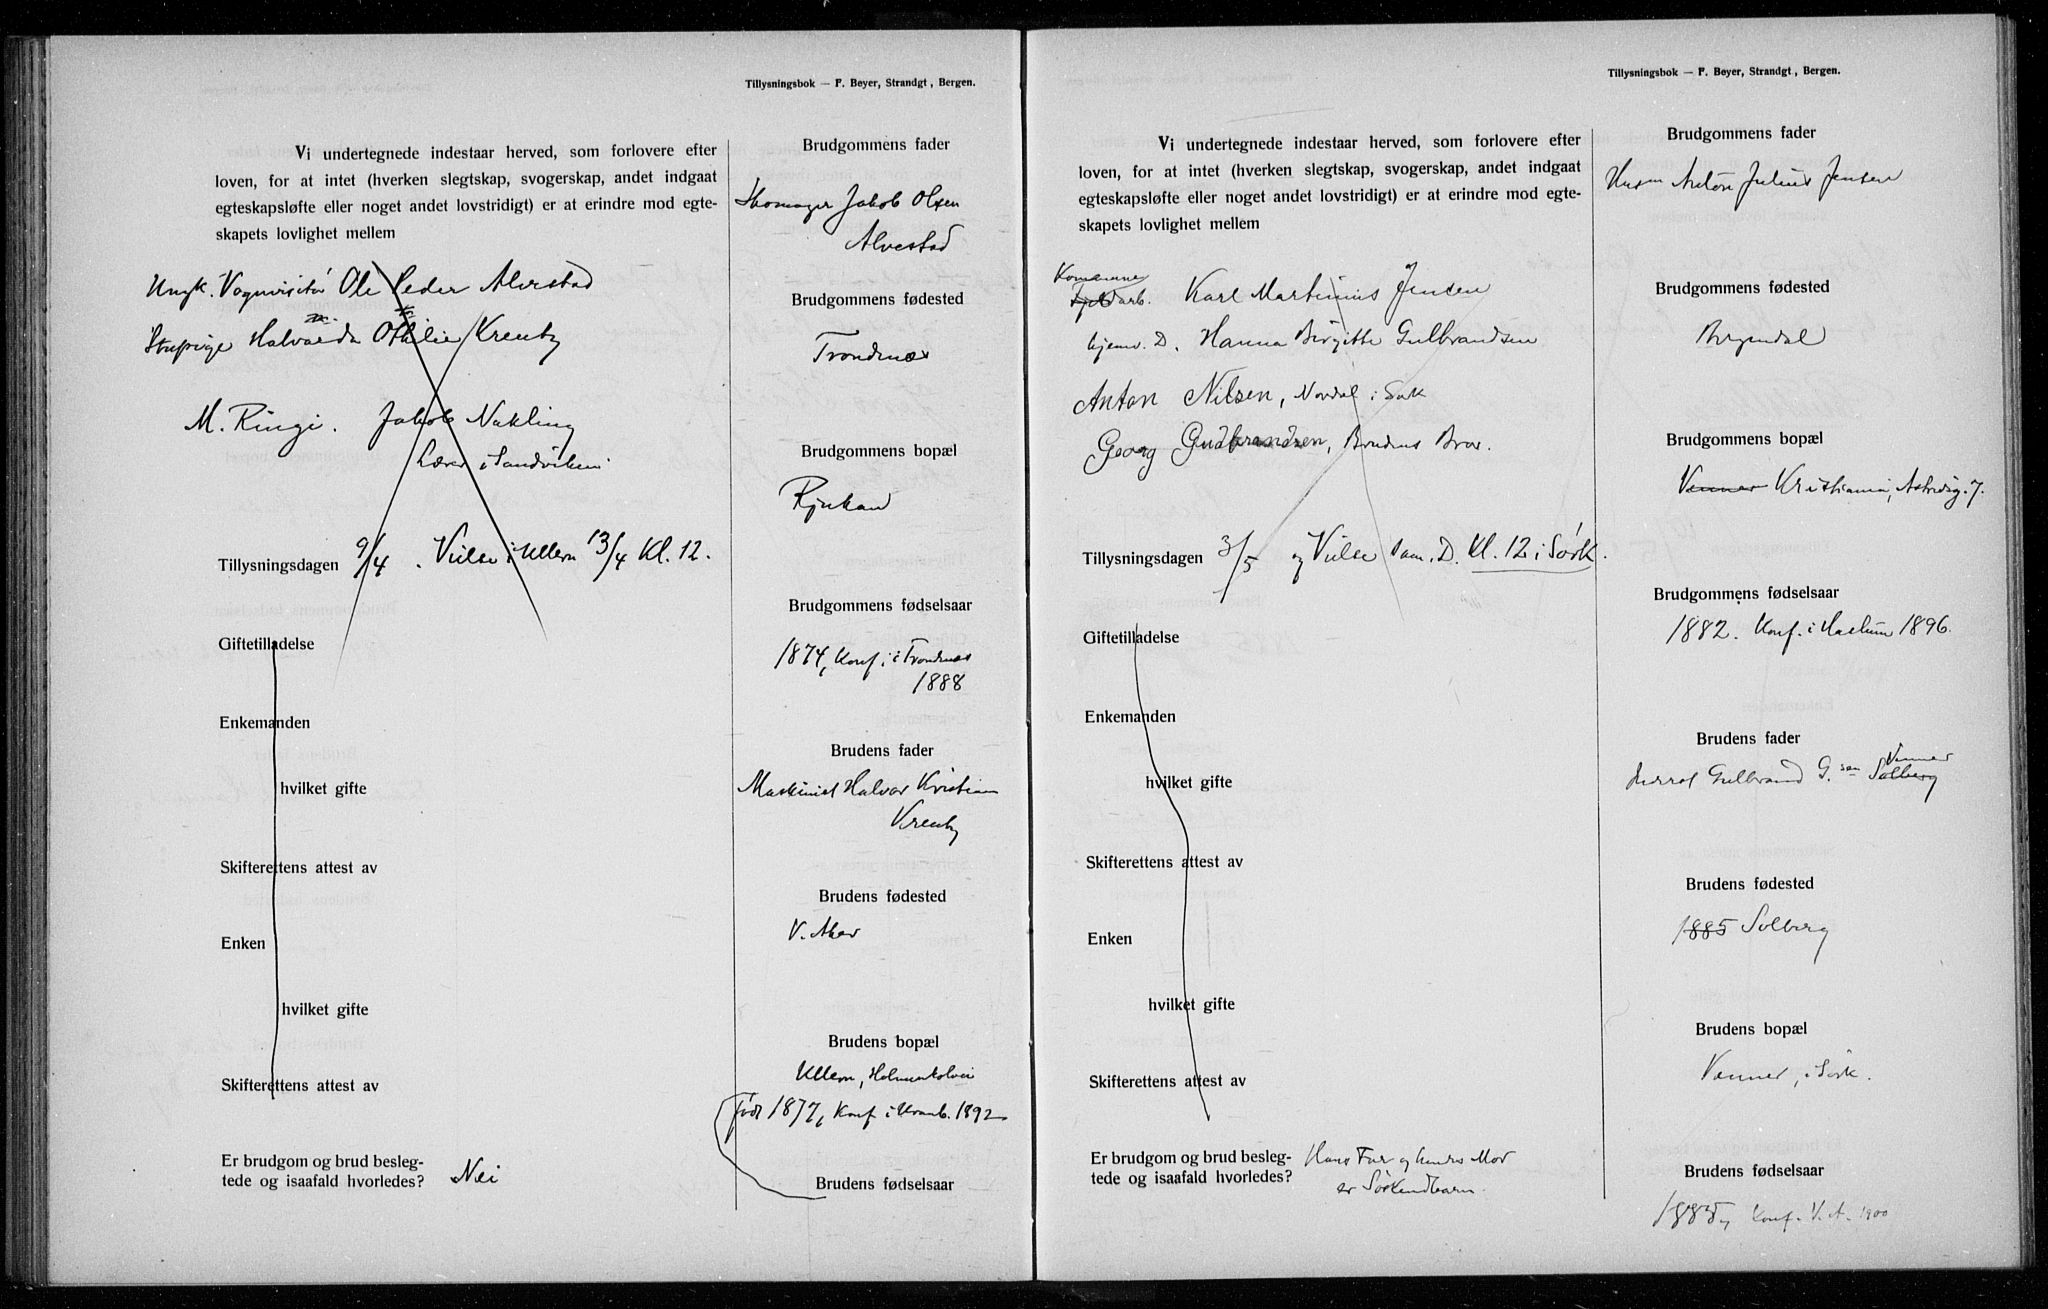 Tillysningsbok — F. Beyer, Strandgt, Bergen.
Vi undertegnede indestaar herved, som forlovere efter
loven, for at intet (hverken slegtskap, svogerskap, andet indgaat
egteskapsløfte eller noget andet lovstridigt) er at erindre mod egte-
skapets lovlighet mellem
Ungk. Vognvisitør Ole Peder Alvestad
Halvarda Othilie Krenby
M. Ringi. Jakob Nakling
Lærer i Sandviken
Tillysningsdagen 9/4. Vielse i Ullern 13/4 Kl. 12.
Giftetilladelse
Enkemanden
hvilket gifte
Skifterettens attest av
Enken
hvilket gifte
Skifterettens attest av
Er brudgom og brud besleg-
tede og isaafald hvorledes? Nei
Brudgommens fader
Skomager Jakob Olsen
Alvestad
Brudgommens fødested
Trondenæs
Brudgommens bopæl
Rjukan
Brudgommens fødselsaar
1874, Konf. i Trondenæs
1888
Brudens fader
Maskinist Halvor Kristian
Krenby
Brudens fødested
V. Aker
Brudens bopæl
Ullern, Holmenkolvei
Født 1877, Konf. i Uranb. 1892
Brudens fødselsaar
Tillysningsbok — F. Beyer, Strandgt, Bergen.
Vi undertegnede indestaar herved, som forlovere efter
loven, for at intet (hverken slegtskap, svogerskap, andet indgaat
egteskapsløfte eller noget andet lovstridigt) er at erindre mod egte-
skapets lovlighet mellem
arb. Karl Martinius Jensen
hjemv. D. Hanna Birgitte Gulbrandsen
Anton Nilsen, Nordal i Sørk
Georg Gudbrandsen, Brudens Bror.
Tillysningsdagen 3/5 og Vielse sam. D. Kl. 12 i Sørk.
Giftetilladelse
Enkemanden
hvilket gifte
Skifterettens attest av
Enken
hvilket gifte
Skifterettens attest av
Er brudgom og brud besleg-
tede og isaafald hvorledes? Hans Far og hendes Mor
er Søskendbarn.
Brudgommens fader
Husm Anton Julius Jensen
Brudgommens fødested
Bergendal
Brudgommens bopæl
Venner Kristiania, Astridsg. 7.
Brudgommens fødselsaar
1882. Konf. i Haslum 1896.
Brudens fader
Gulbrand G.sen Venner
Solberg
Brudens fødested
1885 Solberg
Brudens bopæl
Venner, i Sørk.
Brudens fødselsaar
1885, Konf. V. A. 1900